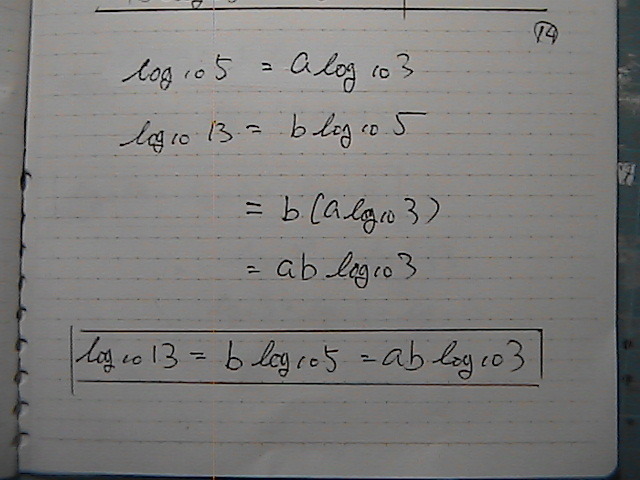 14
log₁₀ 5 = a log₁₀ 3
log₁₀ 13 = b log₁₀ 5
= b (a log₁₀ 3)
= ab log₁₀ 3
log₁₀ 13 = b log₁₀ 5 = ab log₁₀ 3